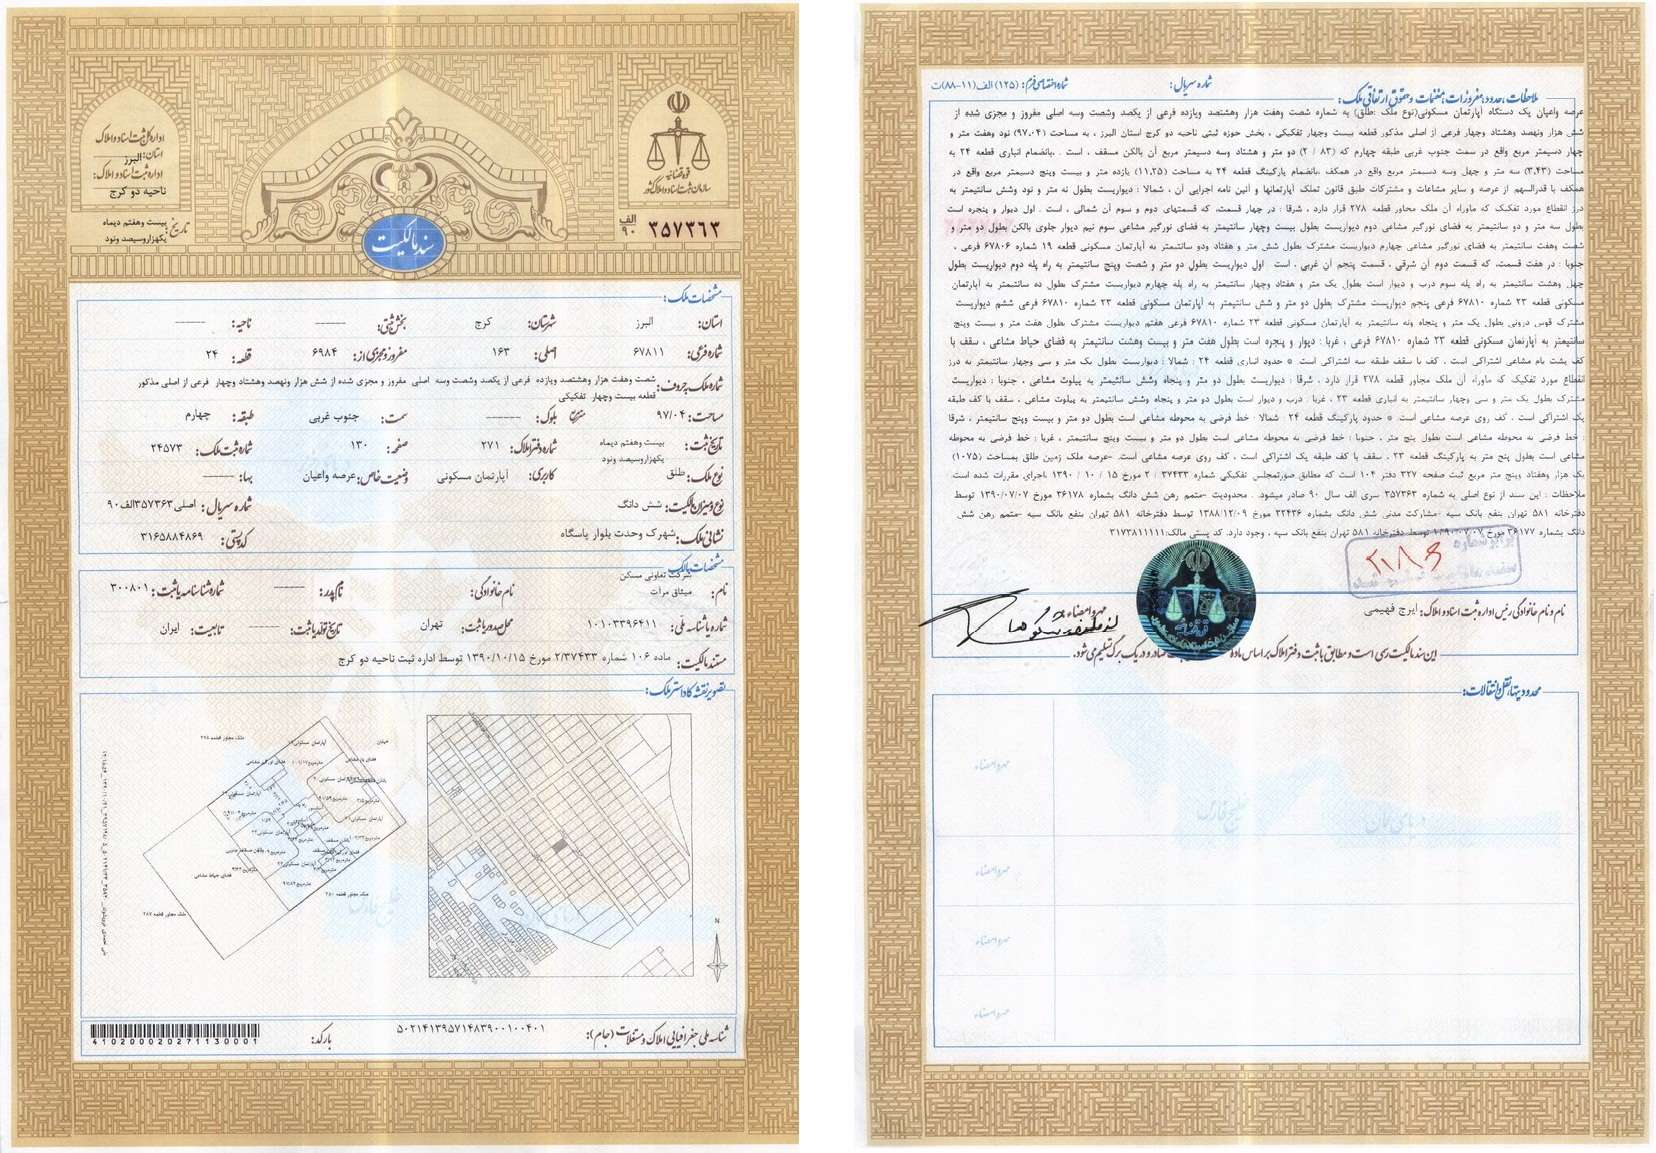 اداره کل ثبت اسناد و املاک
استان: البرز
اداره ثبت اسناد و املاک:
ناحیه دو کرج
تاریخ: بیست وهفتم دیماه
یکهزاروسیصد ونود
قوه قضائیه
سازمان ثبت اسناد و املاک کشور
الف ۹۰ ۳۵۷۳۶۳
سند مالکیت
مشخصات ملک:
استان: البرز شهرستان: کرج بخش ثبتی: ------ ناحیه: ------
شماره فرعی: ۶۷۸۱۱ اصلی: ۱۶۳ مفروز و مجزی از: ۶۹۸۴ قطعه: ۲۴
شماره ملک بحروف: شصت وهفت هزار وهشتصد ویازده فرعی از یکصد وشصت وسه اصلی مفروز و مجزی شده از شش هزار ونهصد وهشتاد وچهار فرعی از اصلی مذکور
قطعه بیست وچهار تفکیکی
مساحت: ۹۷/۰۴ مترمربع بلوک: ------ سمت: جنوب غربی طبقه: چهارم
تاریخ ثبت: بیست وهفتم دیماه یکهزاروسیصد ونود شماره دفتر املاک: ۲۷۱ صفحه: ۱۳۰ شماره ثبت ملک: ۳۴۵۷۳
نوع ملک: طلق کاربری: آپارتمان مسکونی وضعیت خاص: عرصه واعیان بها: ------
نوع و میزان مالکیت: شش دانگ شماره سریال: اصلی۳۵۷۳۶۳الف۹۰
نشانی ملک: شهرک وحدت بلوار پاسگاه کد پستی: ۳۱۶۵۸۸۴۸۶۹
مشخصات مالک:
نام: شرکت تعاونی مسکن میثاق مرات نام خانوادگی: نام پدر: ------ شماره شناسنامه یا ثبت: ۳۰۰۸۰۱
شماره یا شناسه ملی: ۱۰۱۰۳۳۹۶۴۱۱ محل صدور یا ثبت: تهران تاریخ تولد یا ثبت: ------ تابعیت: ایران
مستند مالکیت: ماده ۱۰۶ شماره ۲/۳۷۴۳۳ مورخ ۱۳۹۰/۱۰/۱۵ توسط اداره ثبت ناحیه دو کرج
تصویر نقشه کاداستر ملک:
ملک مجاور قطعه ۲۷۸
خیابان
فضای حیاط مشاعی
ملک مجاور قطعه ۲۸۰
ملک مجاور قطعه ۲۸۷
N
شناسه ملی جغرافیایی املاک و مستغلات (جام): ۵۰۲۱۴۱۳۹۵۷۱۴۸۳۹۰۰۱۰۰۴۰۱
بارکد: 410200020271130001
شماره سریال: شماره اختصاصی فرم: (۱۲۵) الف(۱۱-۸۸)ت
ملاحظات، حدود، مفروزات، منضمات و حقوق ارتفاقی ملک:
عرصه واعیان یک دستگاه آپارتمان مسکونی(نوع ملک :طلق) به شماره شصت وهفت هزار وهشتصد ویازده فرعی از یکصد وشصت وسه اصلی مفروز و مجزی شده از
شش هزار ونهصد وهشتاد وچهار فرعی از اصلی مذکور قطعه بیست وچهار تفکیکی ، بخش حوزه ثبتی ناحیه دو کرج استان البرز ، به مساحت (۹۷،۰۴) نود وهفت متر و
چهار دسیمتر مربع واقع در سمت جنوب غربی طبقه چهارم که (۸۳ / ۲) دو متر و هشتاد وسه دسیمتر مربع آن بالکن مسقف ، است . .بانضمام انباری قطعه ۲۴ به
مساحت (۳،۴۳) سه متر و چهل وسه دسیمتر مربع واقع در همکف .بانضمام پارکینگ قطعه ۲۴ به مساحت (۱۱،۲۵) یازده متر و بیست وپنج دسیمتر مربع واقع در
همکف با قدرالسهم از عرصه و سایر مشاعات و مشترکات طبق قانون تملک آپارتمانها و آئین نامه اجرایی آن . شمالا : دیواریست بطول نه متر و نود وشش سانتیمتر به
درز انقطاع مورد تفکیک که ماوراء آن ملک مجاور قطعه ۲۷۸ قرار دارد ، شرقا : در چهار قسمت، که قسمتهای دوم و سوم آن شمالی ، است . اول دیوار و پنجره است
بطول سه متر و دو سانتیمتر به فضای نورگیر مشاعی دوم دیواریست بطول بیست وچهار سانتیمتر به فضای نورگیر مشاعی سوم نیم دیوار جلوی بالکن بطول دو متر و
شصت وهفت سانتیمتر به فضای نورگیر مشاعی چهارم دیواریست مشترک بطول شش متر و هفتاد ودو سانتیمتر به آپارتمان مسکونی قطعه ۱۹ شماره ۶۷۸۰۶ فرعی ،
جنوبا : در هفت قسمت، که قسمت دوم آن شرقی ، قسمت پنجم آن غربی ، است . اول دیواریست بطول دو متر و شصت وپنج سانتیمتر به راه پله دوم دیواریست بطول
چهل وهشت سانتیمتر به راه پله سوم درب و دیوار است بطول یک متر و هفتاد وچهار سانتیمتر به راه پله چهارم دیواریست مشترک بطول ده سانتیمتر به آپارتمان
مسکونی قطعه ۲۳ شماره ۶۷۸۱۰ فرعی پنجم دیواریست مشترک بطول دو متر و شش سانتیمتر به آپارتمان مسکونی قطعه ۲۳ شماره ۶۷۸۱۰ فرعی ششم دیواریست
مشترک قوس درونی بطول یک متر و پنجاه ونه سانتیمتر به آپارتمان مسکونی قطعه ۲۳ شماره ۶۷۸۱۰ فرعی هفتم دیواریست مشترک بطول هفت متر و بیست وپنج
سانتیمتر به آپارتمان مسکونی قطعه ۲۳ شماره ۶۷۸۱۰ فرعی ، غربا : دیوار و پنجره است بطول هفت متر و بیست وهشت سانتیمتر به فضای حیاط مشاعی ، سقف با
کف پشت بام مشاعی اشتراکی است . کف با سقف طبقه سه اشتراکی است . * حدود انباری قطعه ۲۴ : شمالا : دیواریست بطول یک متر و سی وچهار سانتیمتر به درز
انقطاع مورد تفکیک که ماوراء آن ملک مجاور قطعه ۲۷۸ قرار دارد ، شرقا : دیواریست بطول دو متر و پنجاه وشش سانتیمتر به پیلوت مشاعی ، جنوبا : دیواریست
مشترک بطول یک متر و سی وچهار سانتیمتر به انباری قطعه ۲۳ ، غربا : درب و دیوار است بطول دو متر و پنجاه وشش سانتیمتر به پیلوت مشاعی ، سقف با کف طبقه
یک اشتراکی است . کف روی عرصه مشاعی است. * حدود پارکینگ قطعه ۲۴ : شمالا : خط فرضی به محوطه مشاعی است بطول دو متر و بیست وپنج سانتیمتر ، شرقا
: خط فرضی به محوطه مشاعی است بطول پنج متر ، جنوبا : خط فرضی به محوطه مشاعی است بطول دو متر و بیست وپنج سانتیمتر ، غربا : خط فرضی به محوطه
مشاعی است بطول پنج متر به پارکینگ قطعه ۲۳ ، سقف با کف طبقه یک اشتراکی است . کف روی عرصه مشاعی است. -عرصه ملک زمین طلق بمساحت (۱۰۷۵)
یک هزار وهفتاد وپنج متر مربع ثبت صفحه ۳۲۷ دفتر ۱۰۴ است که مطابق صورتمجلس تفکیکی شماره ۳۷۴۳۳ / ۲ مورخ ۱۵ / ۱۰ / ۱۳۹۰ ،اجرای مقررات شده است.
ملاحظات : این سند از نوع اصلی به شماره ۳۵۷۳۶۳ سری الف سال ۹۰ صادر میشود . محدودیت -متمم رهن شش دانگ بشماره ۳۶۱۷۸ مورخ ۱۳۹۰/۰۷/۰۷ توسط
دفترخانه ۵۸۱ تهران بنفع بانک سپه -مشارکت مدنی شش دانگ بشماره ۳۲۴۳۶ مورخ ۱۳۸۸/۱۲/۰۹ توسط دفترخانه ۵۸۱ تهران بنفع بانک سپه -متمم رهن شش
دانگ بشماره ۳۶۱۷۷ مورخ ۱۳۹۰/۰۷/۰۷ توسط دفترخانه ۵۸۱ تهران بنفع بانک سپه ، وجود دارد. کد پستی مالک:۳۱۷۳۸۱۱۱۱۱
نام و نام خانوادگی رئیس اداره ثبت اسناد و املاک: ایرج فهیمی مهر و امضاء:
این سند مالکیت رسمی است و مطابق با ثبت دفتر املاک بر اساس ماده صادر و در یک برگ تسلیم می‌شود.
محدودیتها، نقل و انتقالات:
مهر و امضاء
خلیج فارس
دریای عمان
مهر و امضاء
مهر و امضاء
مهر و امضاء